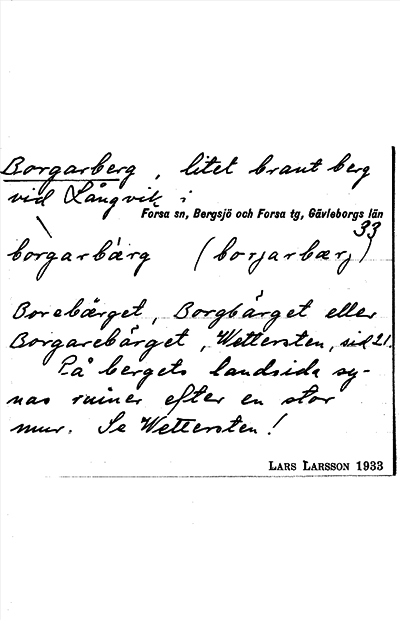 Borgarberg, litet brant berg
vid Långvik i
Forsa sn, Bergsjö och Forsa tg, Gävleborgs län
33
bòrgarbärg (borjarbærj)
Borebärget, Borgbärget eller
Borgarebärget, Wettersten, sid 21.
På bergets landsida sy-
nas ruiner efter en stor
mur. Se Wettersten!
LARS LARSSON 1933